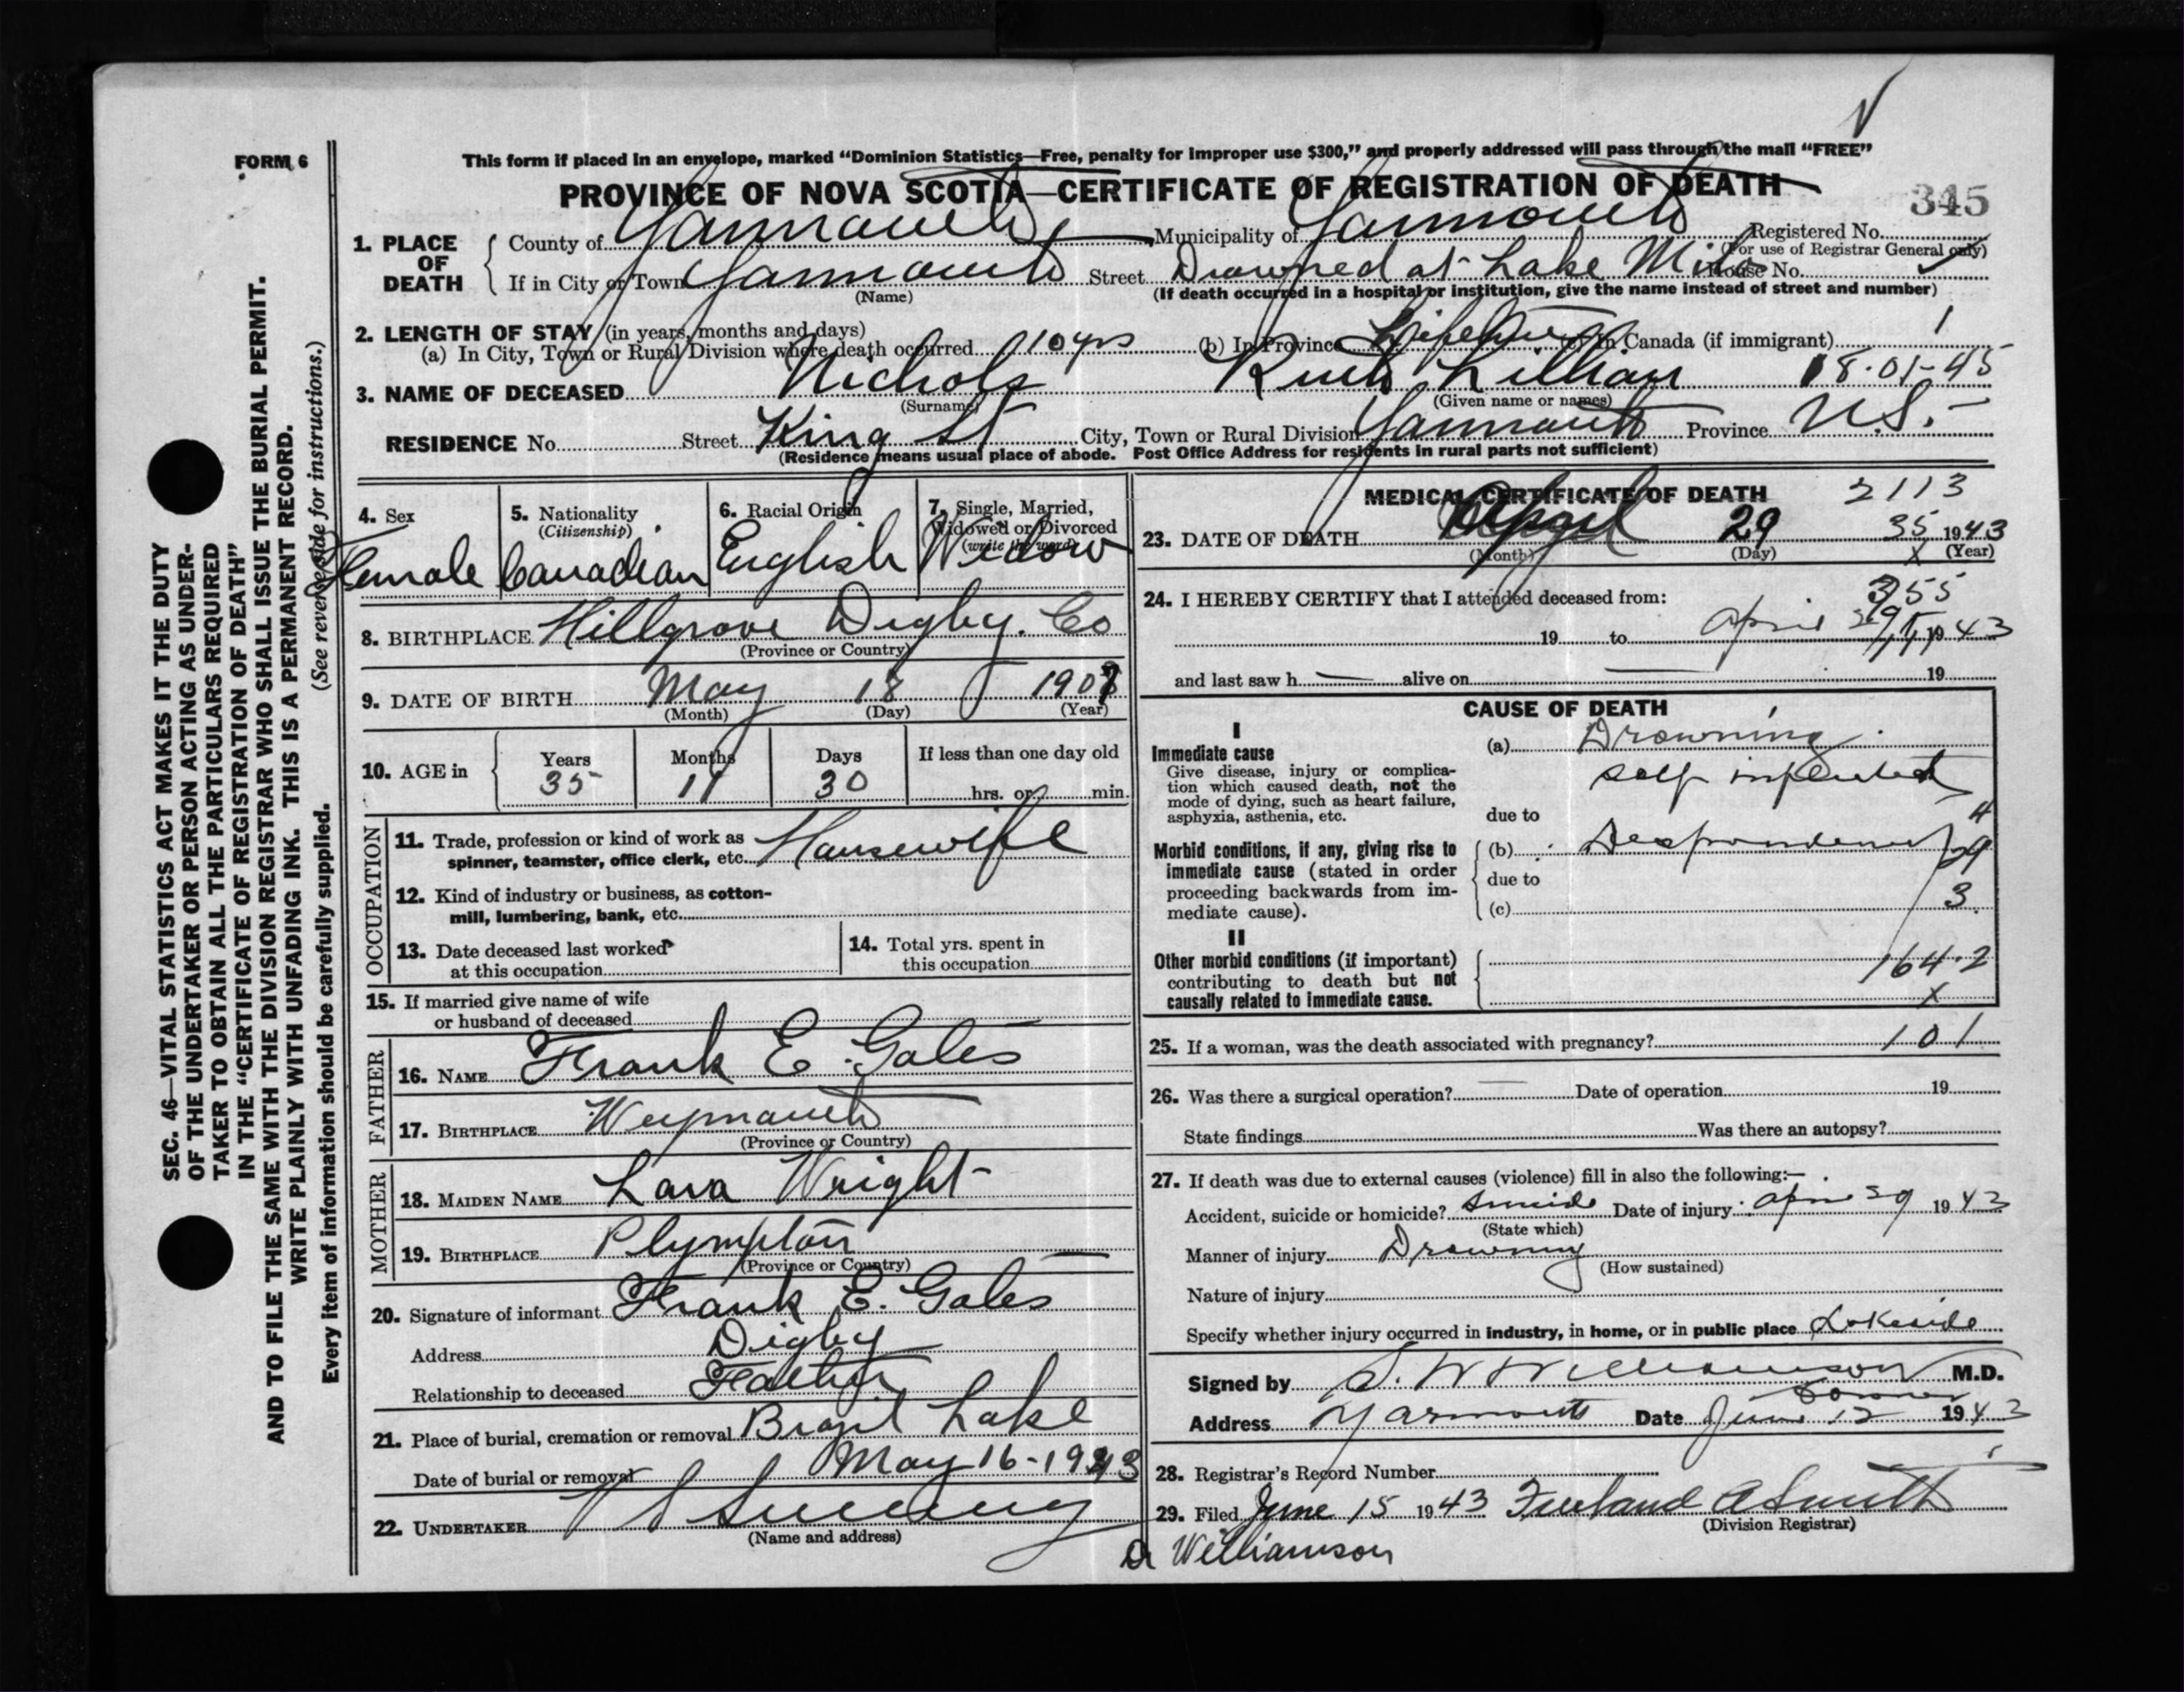 FORM 6
This form if placed in an envelope, marked “Dominion Statistics—Free, penalty for improper use $300,” and properly addressed will pass through the mail “FREE”
PROVINCE OF NOVA SCOTIA—CERTIFICATE OF REGISTRATION OF DEATH
345
1. PLACE OF DEATH
County of Yarmouth Municipality of Yarmouth Registered No.
(For use of Registrar General only)
If in City or Town Yarmouth Street Drowned at Lake Milo House No.
(Name) (If death occurred in a hospital or institution, give the name instead of street and number)
2. LENGTH OF STAY (in years, months and days)
(a) In City, Town or Rural Division where death occurred 10 yrs (b) In Province Lifetime (c) In Canada (if immigrant) 1
3. NAME OF DECEASED Nichols Ruth Lillian 18·01-45
(Surname) (Given name or names)
RESIDENCE No. Street King St City, Town or Rural Division Yarmouth Province N.S.
(Residence means usual place of abode. Post Office Address for residents in rural parts not sufficient)
SEC. 46—VITAL STATISTICS ACT MAKES IT THE DUTY
OF THE UNDERTAKER OR PERSON ACTING AS UNDER-
TAKER TO OBTAIN ALL THE PARTICULARS REQUIRED
IN THE “CERTIFICATE OF REGISTRATION OF DEATH”
AND TO FILE THE SAME WITH THE DIVISION REGISTRAR WHO SHALL ISSUE THE BURIAL PERMIT.
WRITE PLAINLY WITH UNFADING INK. THIS IS A PERMANENT RECORD.
Every item of information should be carefully supplied. (See reverse side for instructions.)
4. Sex
Female
5. Nationality
(Citizenship)
Canadian
6. Racial Origin
English
7. Single, Married,
Widowed or Divorced
(write the word)
Widow
8. BIRTHPLACE Hillgrove Digby. Co
(Province or Country)
9. DATE OF BIRTH May 18 1907
(Month) (Day) (Year)
10. AGE in
Years Months Days If less than one day old
35 11 30 hrs. or min.
OCCUPATION
11. Trade, profession or kind of work as
spinner, teamster, office clerk, etc. Housewife
12. Kind of industry or business, as cotton-
mill, lumbering, bank, etc.
13. Date deceased last worked
at this occupation
14. Total yrs. spent in
this occupation
15. If married give name of wife
or husband of deceased
FATHER
16. NAME Frank E. Gates
17. BIRTHPLACE Weymouth
(Province or Country)
MOTHER
18. MAIDEN NAME Lara Wright
19. BIRTHPLACE Plympton
(Province or Country)
20. Signature of informant Frank E. Gates
Address Digby
Relationship to deceased Father
21. Place of burial, cremation or removal Brazil Lake
Date of burial or removal May 16-1943
22. UNDERTAKER V S Sweeny
(Name and address)
MEDICAL CERTIFICATE OF DEATH 2113
23. DATE OF DEATH April 29 35 1943
(Month) (Day) X (Year)
24. I HEREBY CERTIFY that I attended deceased from: 355
19 to april 29 1943
and last saw h alive on 19
CAUSE OF DEATH
I
Immediate cause
Give disease, injury or complica-
tion which caused death, not the
mode of dying, such as heart failure,
asphyxia, asthenia, etc.
(a) Drowning
self inflicted
due to
4
Morbid conditions, if any, giving rise to
immediate cause (stated in order
proceeding backwards from im-
mediate cause).
(b) Despondency 29
due to
(c) 3.
II
Other morbid conditions (if important)
contributing to death but not
causally related to immediate cause.
164·2
X
25. If a woman, was the death associated with pregnancy? 101
26. Was there a surgical operation? Date of operation 19
State findings Was there an autopsy?
27. If death was due to external causes (violence) fill in also the following:—
Accident, suicide or homicide? Suicide Date of injury april 29 1943
(State which)
Manner of injury Drowning
(How sustained)
Nature of injury
Specify whether injury occurred in industry, in home, or in public place Lakeside
Signed by S. W Williamson M.D.
Address Yarmouth Date June 12 1943
28. Registrar's Record Number
29. Filed June 15 1943 A Smith
(Division Registrar)
Dr Williamson